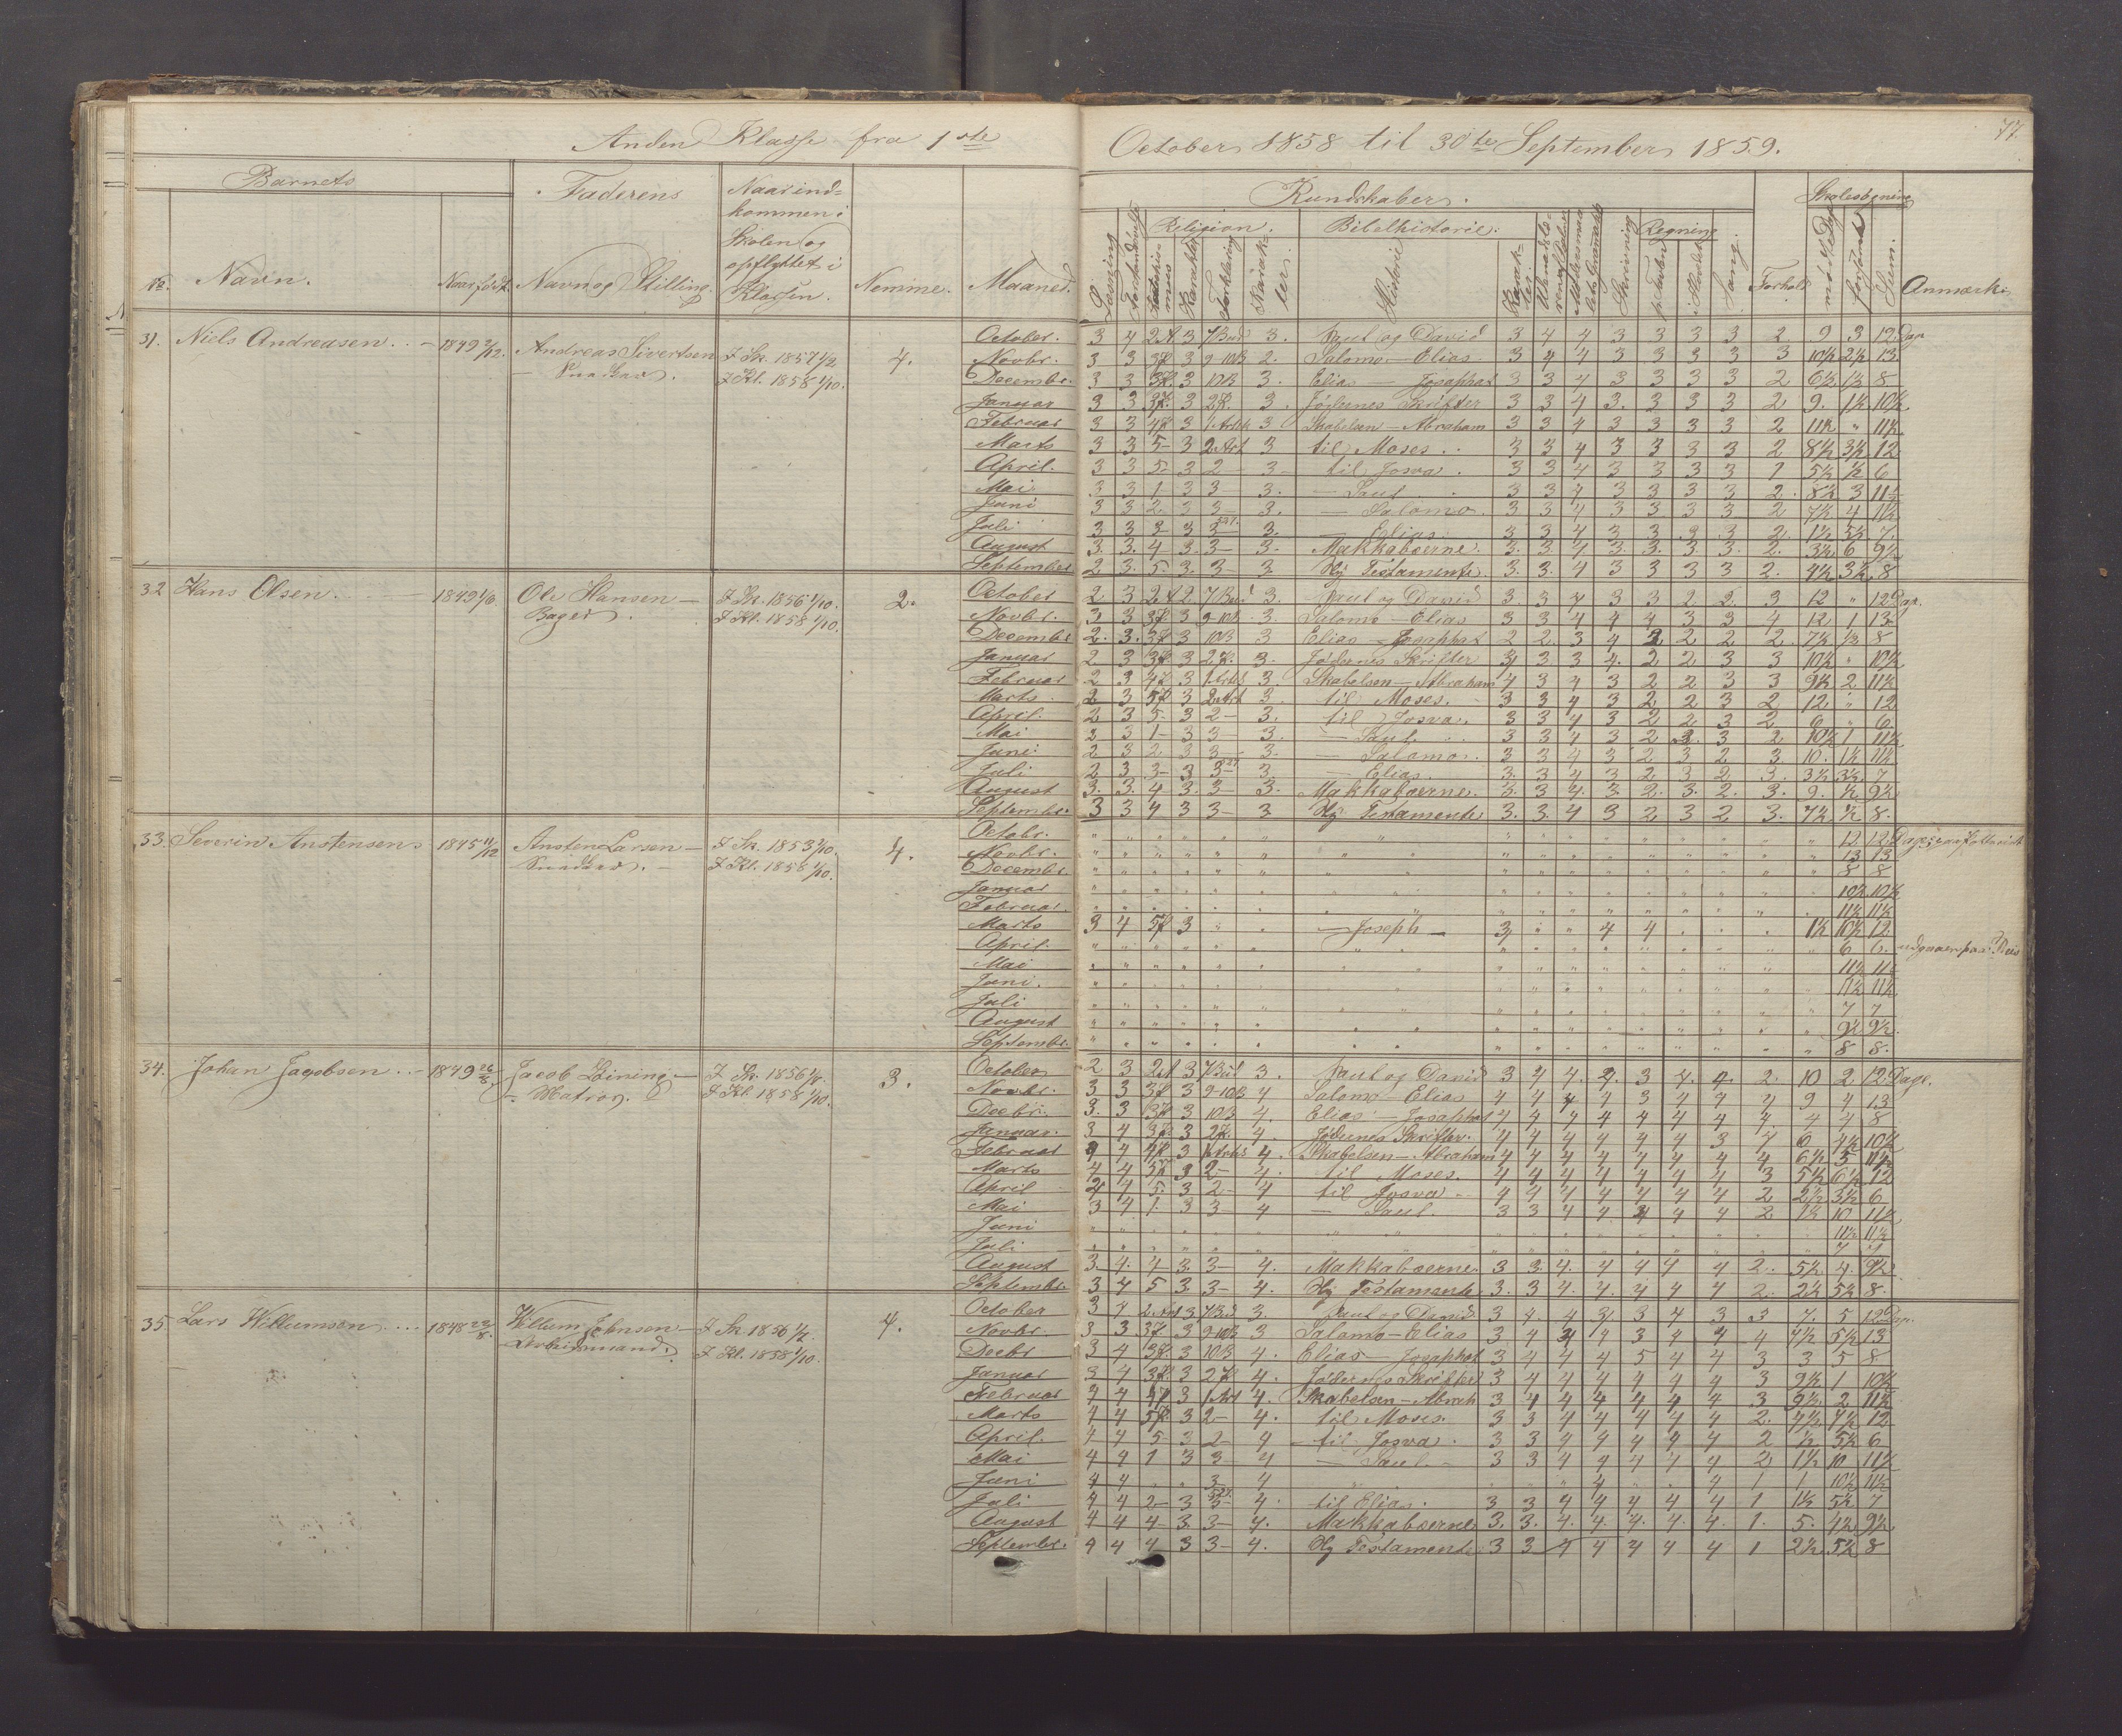 77.
Anden Klasse fra 1ste October 1858 til 30te September 1859.
Barnets
Faderens
Naar ind-
kommen i
Skolen og
opflyttet i
Klassen.
Kundskaber.
Skolesøgning
Religion.
Bibelhistorie.
Regning
No. Navn. Naar født. Navn og Stilling. Nemme. Maaned.
Læsning
Karakter
Forklaring
Karak-
ter.
Historie
Karak-
ter.
Skrivning
Sang.
Forhold
mødt Dage
forsømt
Sum.
Anmærkn.
31. Niels Andreasen. 1849 Andreas Sivertsen I Sk. 1857 1/2 4.
Snedker. I Kl. 1858 1/10.
October. 3 4 2A 3 7 Bud 3. Saul og David 3 4 4 3 3 3 3 2 9 3 12 Dage
Novbr. 3 3 3P 3 9-10B 2. Salomo - Elias 3 4 4 3 3 3 3 3 10½ 2½ 13
Decembr. 3 3 3P. 3 10B 3. Elias - Josaphat 3 3 4 3 3 3 3 2 6½ 1½ 8
Januar 3 3 3P. 3 2P. 3. Jødernes Skrifter 3 3 4 3. 3 3 3 2 9. 1½ 10½
Februar 3 3 4P 3 1 Artk 3 Skabelsen - Abraham 3 3 4 3 3 3 3 2 11½ " 11½
Marts 3 3 5- 3 2 Art 3 til Moses. 3 3 4 3 3 3 3 2 8½ 3½ 12
April. 3 3 5- 3 2- 3- til Josva. 3 3 4 3 3 3 3 1 5½ ½ 6
Mai 3 3 1- 3 3- 3. - Saul 3 3 4 3 3 3 3 2. 8½ 3 11½
Juni 3 3 2 3 3- 3. - Salomo. 3 3 4 3 3 3 3 2 7½ 4 11½
Juli 3 3 3- 3 3- 3. - Elias. 3 3 4 3 3 3 3 2 1½ 5½ 7.
August 3. 3. 4- 3. 3- 3. Makkabæerne. 3. 3. 4. 3. 3. 3. 3. 2. 3½ 6 9½
September 2 3. 5. 3. 3- 3 Ny Testamente. 3. 3. 4 3 3 3 3 2. 4½ 3½ 8
32 Hans Olsen. 1849 1/6 Ole Hansen - I Sk. 1856 1/10. 2.
Bager. I Kl. 1858 1/10.
October 2 3 2A 2 7 Bud 3. Saul og David 3 3 4 3 3 2 2. 3 12 " 12 Dage.
Novbr. 3 3 3P 3 9-10B. 3. Salomo - Elias 3 3 4 4 4 3 3 4 12 1 13
Decembr 2. 3. 3P 3 10B 3 Elias - Josaphat 2 2. 3 4 2 2 2 2. 7½ ½ 8
Januar 2 3 3P. 3 2P. 3. Jødernes Skrifter 3 3. 3 4. 2 2 3 3 10½ " 10½
Februar 2 3 4P 3 1 Artk 3 Skabelsen - Abraham 4 3 4 3 2 2 3 3 9½ 2 11½
Marts. 2 3 5P 3 2 Art 3 til Moses. 3 3 4 3 2 2 3 2 12 " 12
April. 2 3 5- 3 2- 3. til Josva. 3 3 4 3 2 2 3 2 6 " 6
Mai 2 3 1- 3 3- 3. - Saul. 3 3 4 3 2 3. 3 2 10½ 1 11½
Juni. 2 3 2 3 3- 3. - Salomo. 3 3 4 3 2 3 2 3 10. 1½ 11½
Juli 2 3 3- 3 3- 3 - Elias. 3. 3 4 3 2 3 2 3. 3½ 3½ 7
August 3. 3. 4 3. 3- 3. Makkabæerne. 3. 3 4. 3. 2. 3. 2. 3. 9. ½ 9½
Septembr. 3 3 4 3 3- 3 Ny Testamente 3. 3. 4 3 2 3 2 3. 7½ ½ 8.
33. Severin Anstensen 1845 11/12 Ansten Larsen - I Sk. 1853 2/10. 4.
Snedker. - I Kl. 1858 1/10.
Octobr. 12 12 Dage
Novbr. 13 13
Decembr. 8 8
Januar 10½ 10½
Februar. 11½ 11½
Marts 3 4 5P 3 " - Joseph - 3 " " 4 4 1½ 10½ 12
April. 6 6. udgaaen paa Reis
Mai 11½ 11½
Juni. 11½ 11½
Juli 7 7
August 9½ 9½.
Septembr. 8 8.
34. Johan Jacobsen 1849 26/8 Jacob - I Sk. 1856 3.
- Matros. I Kl. 1858 1/10.
October 2 3 2A 3 7 Bud 3. Saul og David 3 4 4. 4. 3 4. 4. 2. 10 2 12 Dage.
Novbr. 3 3 3P 3 9-10B 4 Salomo - Elias 4 4 4 4 3 4 4 4 9 4 13
Decbr. 3. 3 3P. 3 10B 4. Elias - Josaphat 4 4 4 4 4 4 4 4. 4 4 8
Januar. 3 4 3P. 3 2P. 4. Jødernes Skrifter. 4 4 4 4 4 4 3 4 6 4½ 10½
Februar 4 4 4P 3 1 Artk 4. Skabelsen - Abraham 4 4 4 4 4 4 4 4 6½ 5 11½
Marts 4 4 5P 3 2- 4. til Moses. 4 4 4 4 4 4 4 3 5½ 6½ 12
April 4 4 5. 3 2- 4 til Josva 4 4 4 4 4 4 4 2 2½ 3½ 6
Mai 3 4 1. 3 3- 4 - Saul 3 3 4 4 4 4 4 2. 1½ 10 11½
Juni 11½ 11½
Juli 7 7
August 3. 4. 4 3. 3- 4. Makkabæerne. 3 3. 4. 4 4 4 4 2. 5½ 4. 9½
Septembr. 3 4 5 3. 3- 4. Ny Testamente 3. 3 4. 4. 4 4 4 2. 2½ 5½ 8.
35. Lars Willumsen 1848 23/8. Willum Johnsen - I Sk. 1856 4.
Arbeidsmand. I Kl. 1858 1/10.
October 3 4 2 Art 3 7 Bud 3. Saul og David 3 4. 4 3 3 4 3 3 7. 5 12 Dage.
Novbr. 3 3 3P. 3 9-10B 3 Salomo - Elias 3 4 4 4 3 4 4 4 7½ 5½ 13
Decbr 3 4 3P. 3 10B 4. Elias - Josaphat 3 4 4 4 5 4 4 3 3 5 8
Januar 3 4 3P. 3 2P 4. Jødernes Skrifter 3 4 4 4 4 4 4 3 9½ 1 10½
Februar 4 4 4P 3 1 Art 4. Skabelsen - Abrah 3 4 4 4 4 4 4 3 9½. 2 11½
Marts 4 4 5P. 3 2- 4. til Moses. 3 3 4 4 4 4 4 2. 4½ 7½ 12
April. 4 4 5- 3 2- 4 - til Josva. 3 3 4 4 4 4 4 2 ½ 5½ 6
Mai 4 4 1 3 3- 4 - Saul - 3 3 4 4 4 4 4 2 1½ 10 11½
Juni 4 4 3- 4 4 4 1 1 10½ 11½
Juli 4 4 2- 3 3- 4. til Elias. 3 3 4 4 4 4 4 1 1½ 5½ 7
August 4 4 4- 3. 3- 4. Makkabæerne 3. 3. 4. 4. 4. 4. 4. 1. 5. 4½ 9½
Septembr. 4 4 4 3 3- 4. Ny Testamente 3 3 4 4 4 4 4 1 2½ 5½ 8